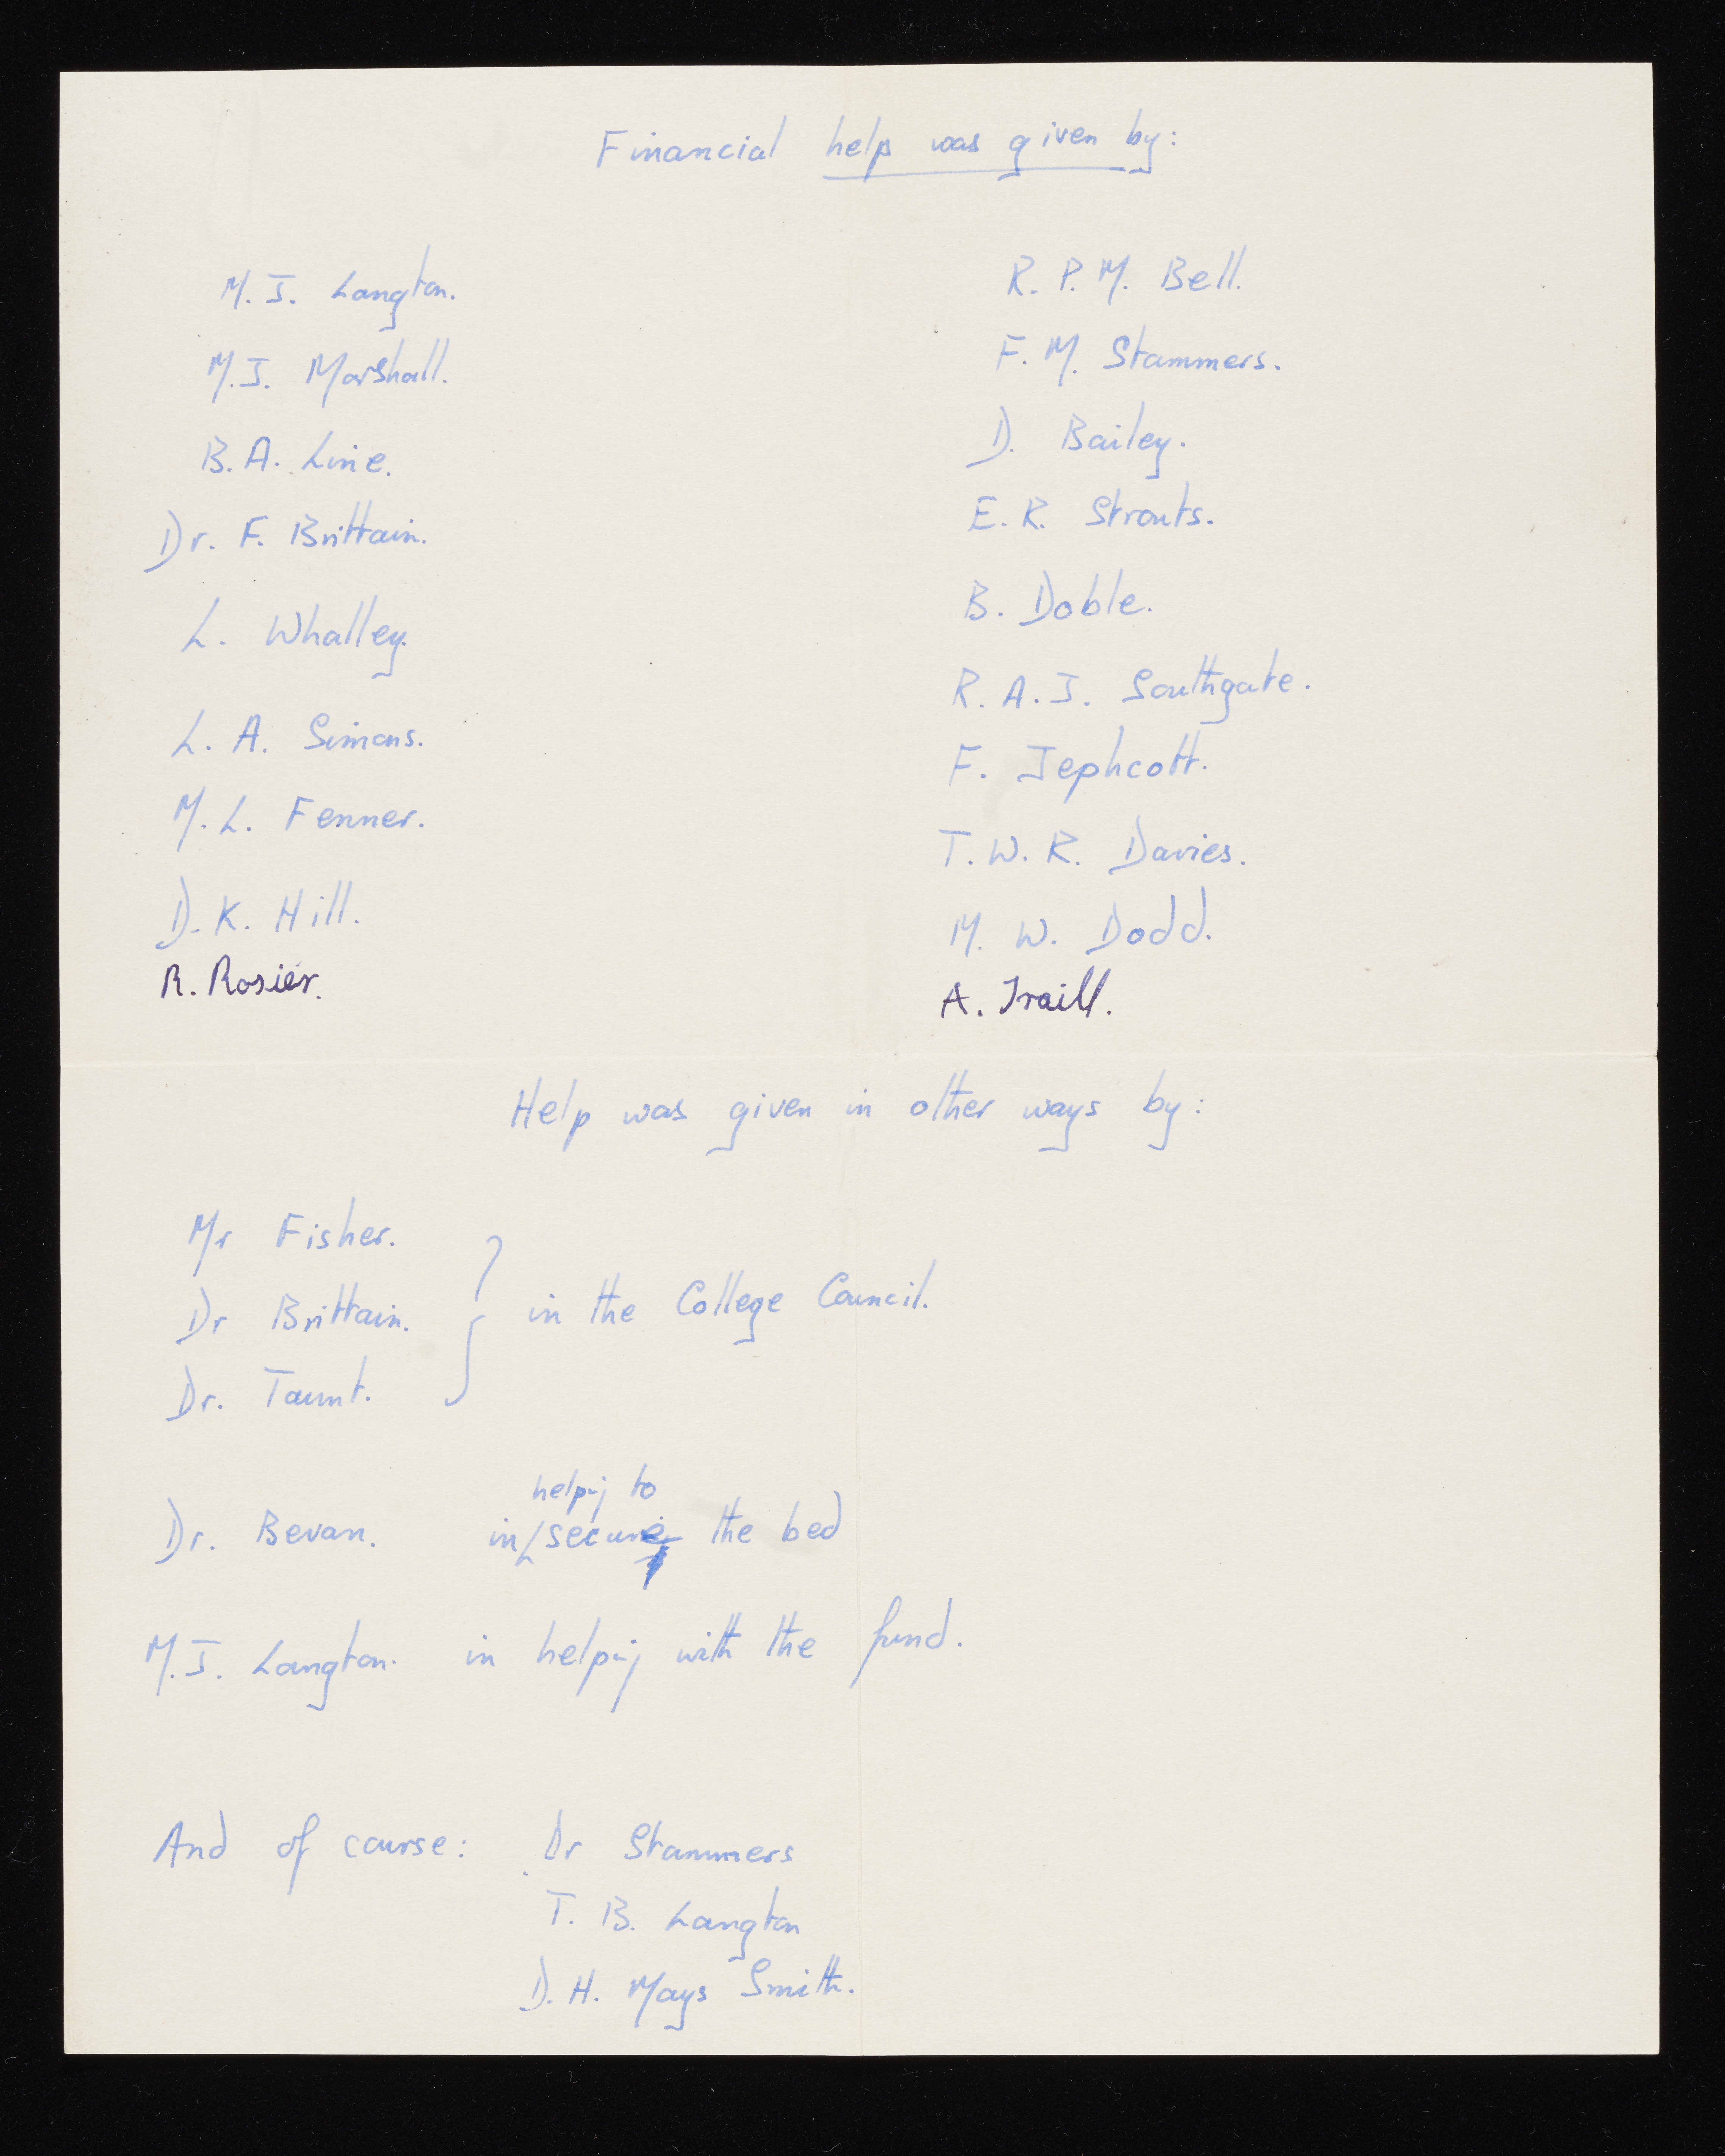 Financial help was given by:
M. J. Langton.
M. J. Marshall.
B. A. Line.
Dr. F. Brittain.
L. Whalley.
L. A. Simons.
M. L. Fenner.
D. K. Hill.
R. Rosier.
R. P. M. Bell.
F. M. Stammers.
D. Bailey.
E. R. Strouts.
B. Doble.
R. A. J. Southgate.
F. Jephcott.
T. W. R. Davies.
M. W. Dodd.
A. Traill.
Help was given in other ways by:
Mr Fisher.
Dr Brittain. } in the College Council.
Dr. Taunt.
helping to
Dr. Bevan. in secure the bed
M. J. Langton. in helping with the fund.
And of course: Dr Stammers
T. B. Langton
D. H. Mays Smith.